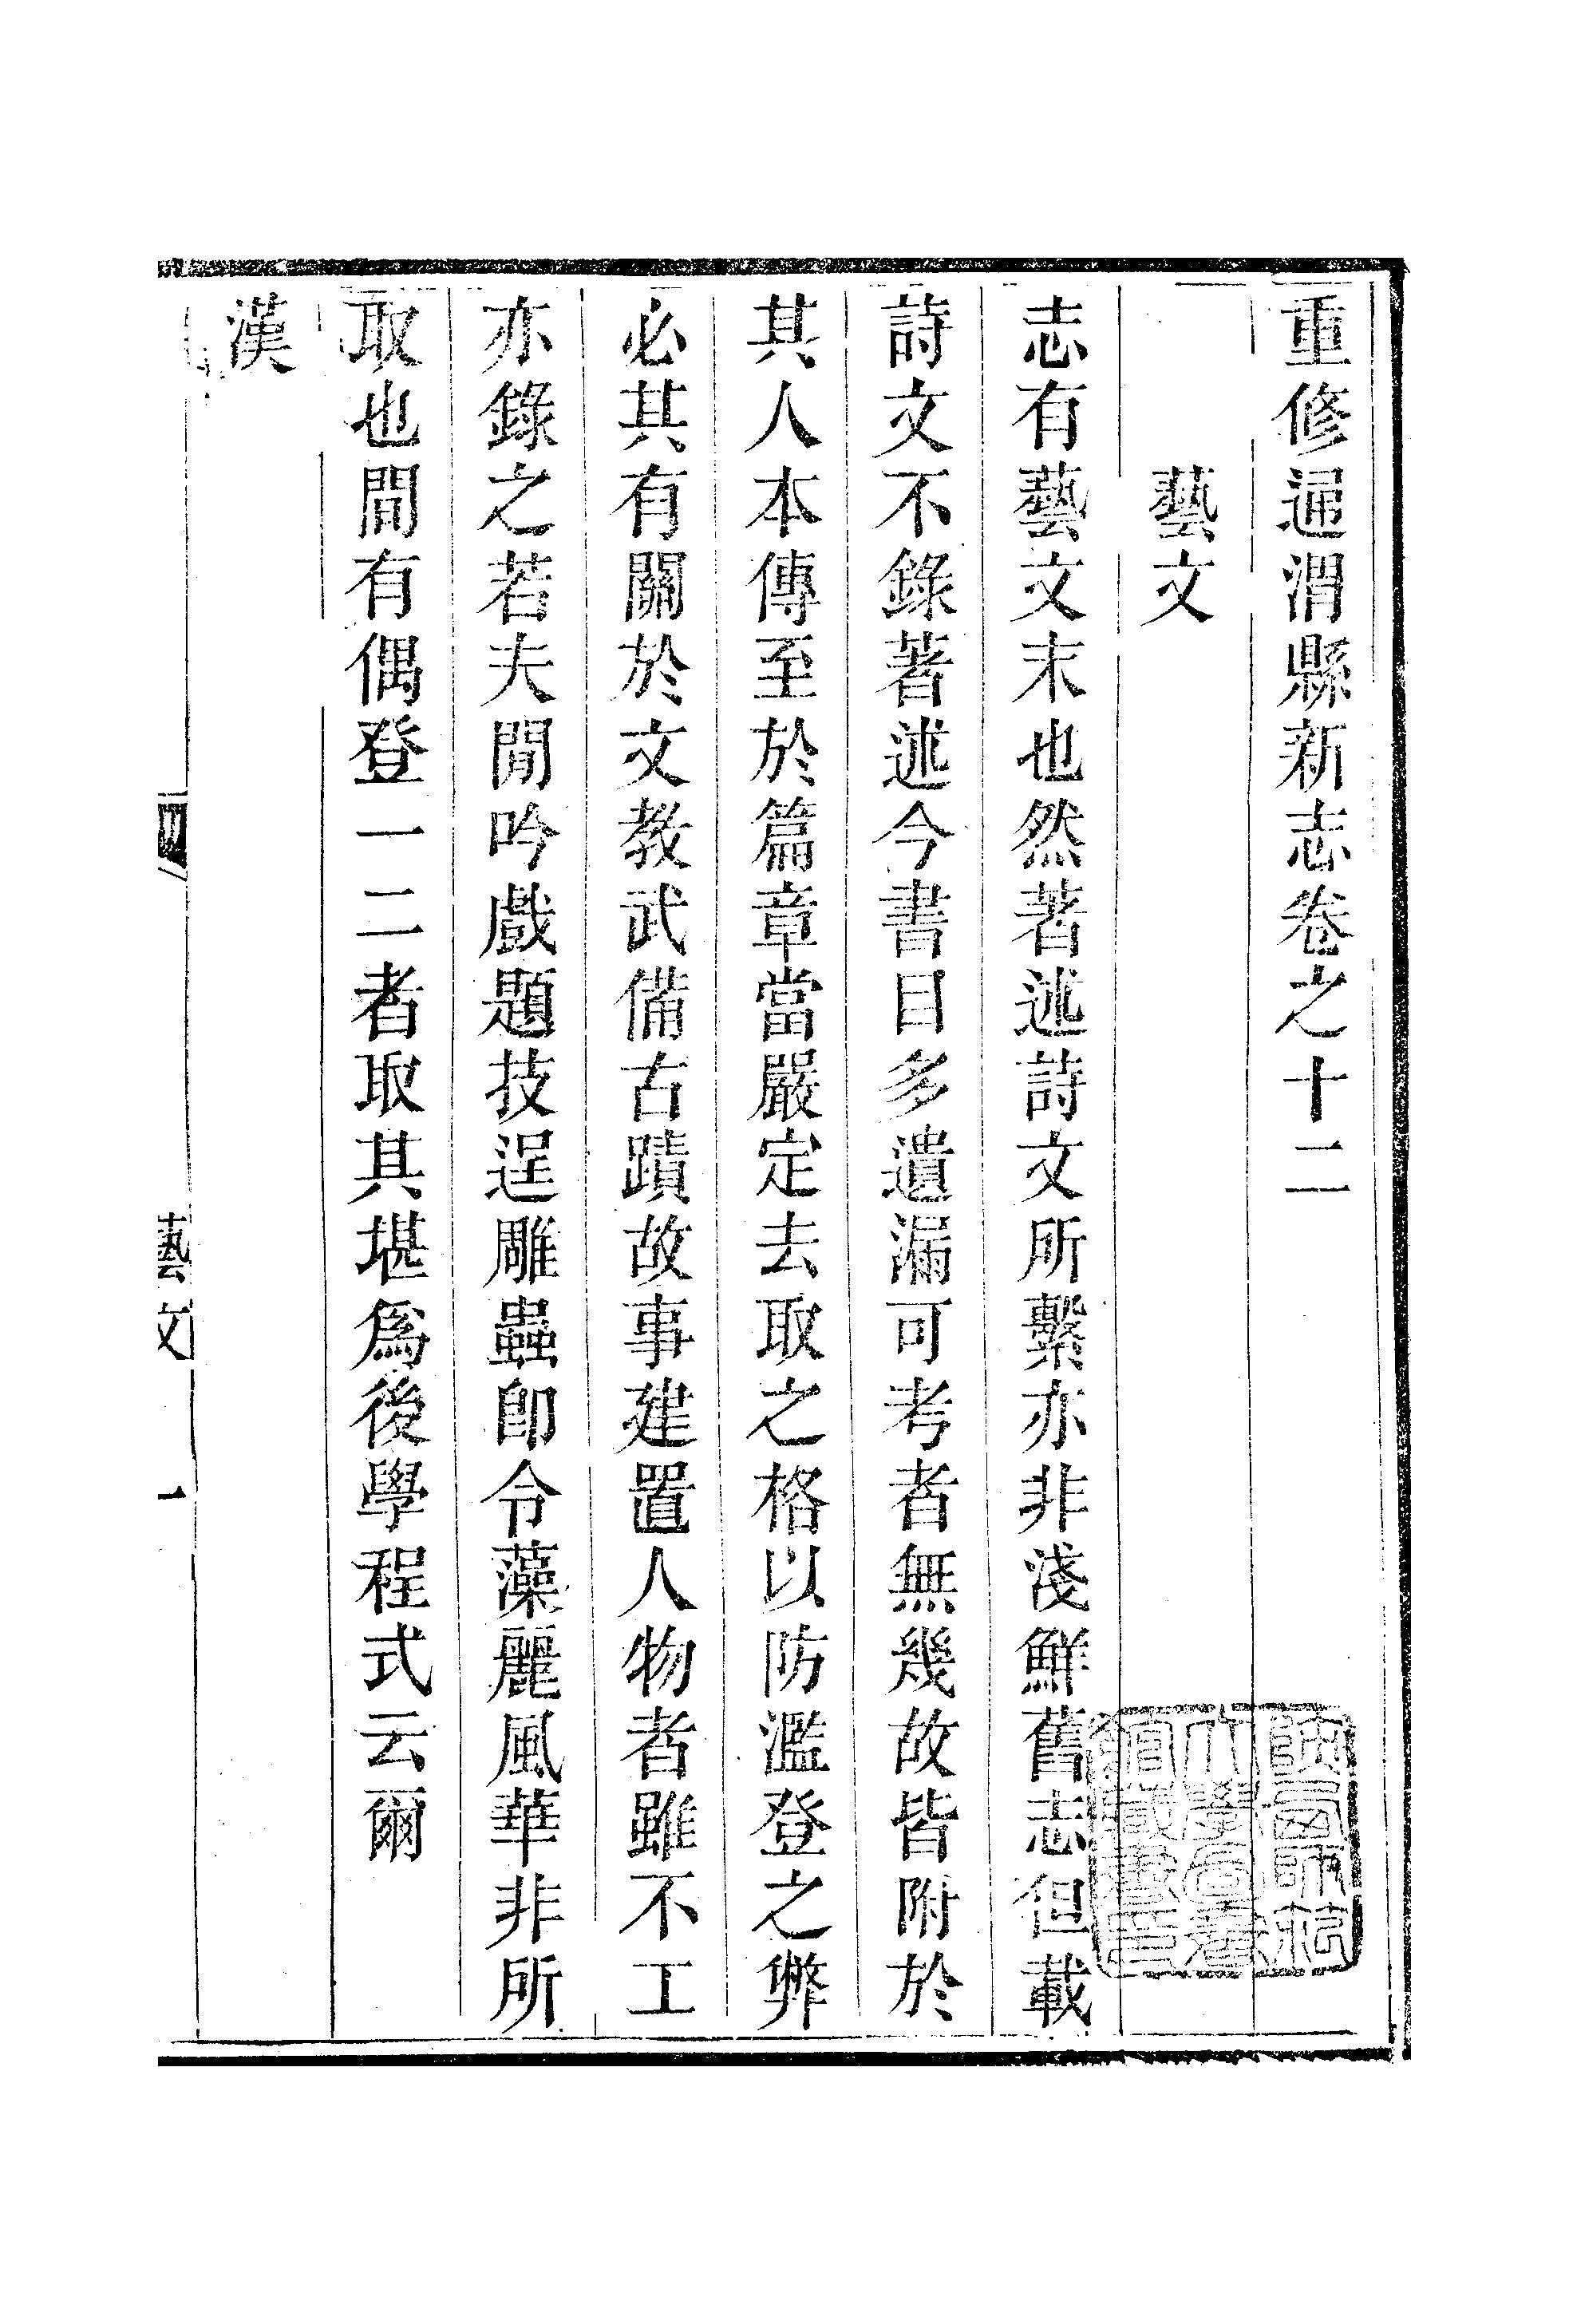 重修通渭縣新志卷之十二
藝文
志有藝文末也然著述詩文所繫亦非淺鮮舊志但載
詩文不錄著述今書目多遺漏可考者無幾故皆附於
其人本傳至於篇章當嚴定去取之格以防濫登之弊
必其有關於文教武備古蹟故事建置人物者雖不工
亦錄之若夫閒吟戲題技逞雕蟲卽令藻麗風華非所
取也間有偶登一二者取其堪爲後學程式云爾
漢
藝文
一